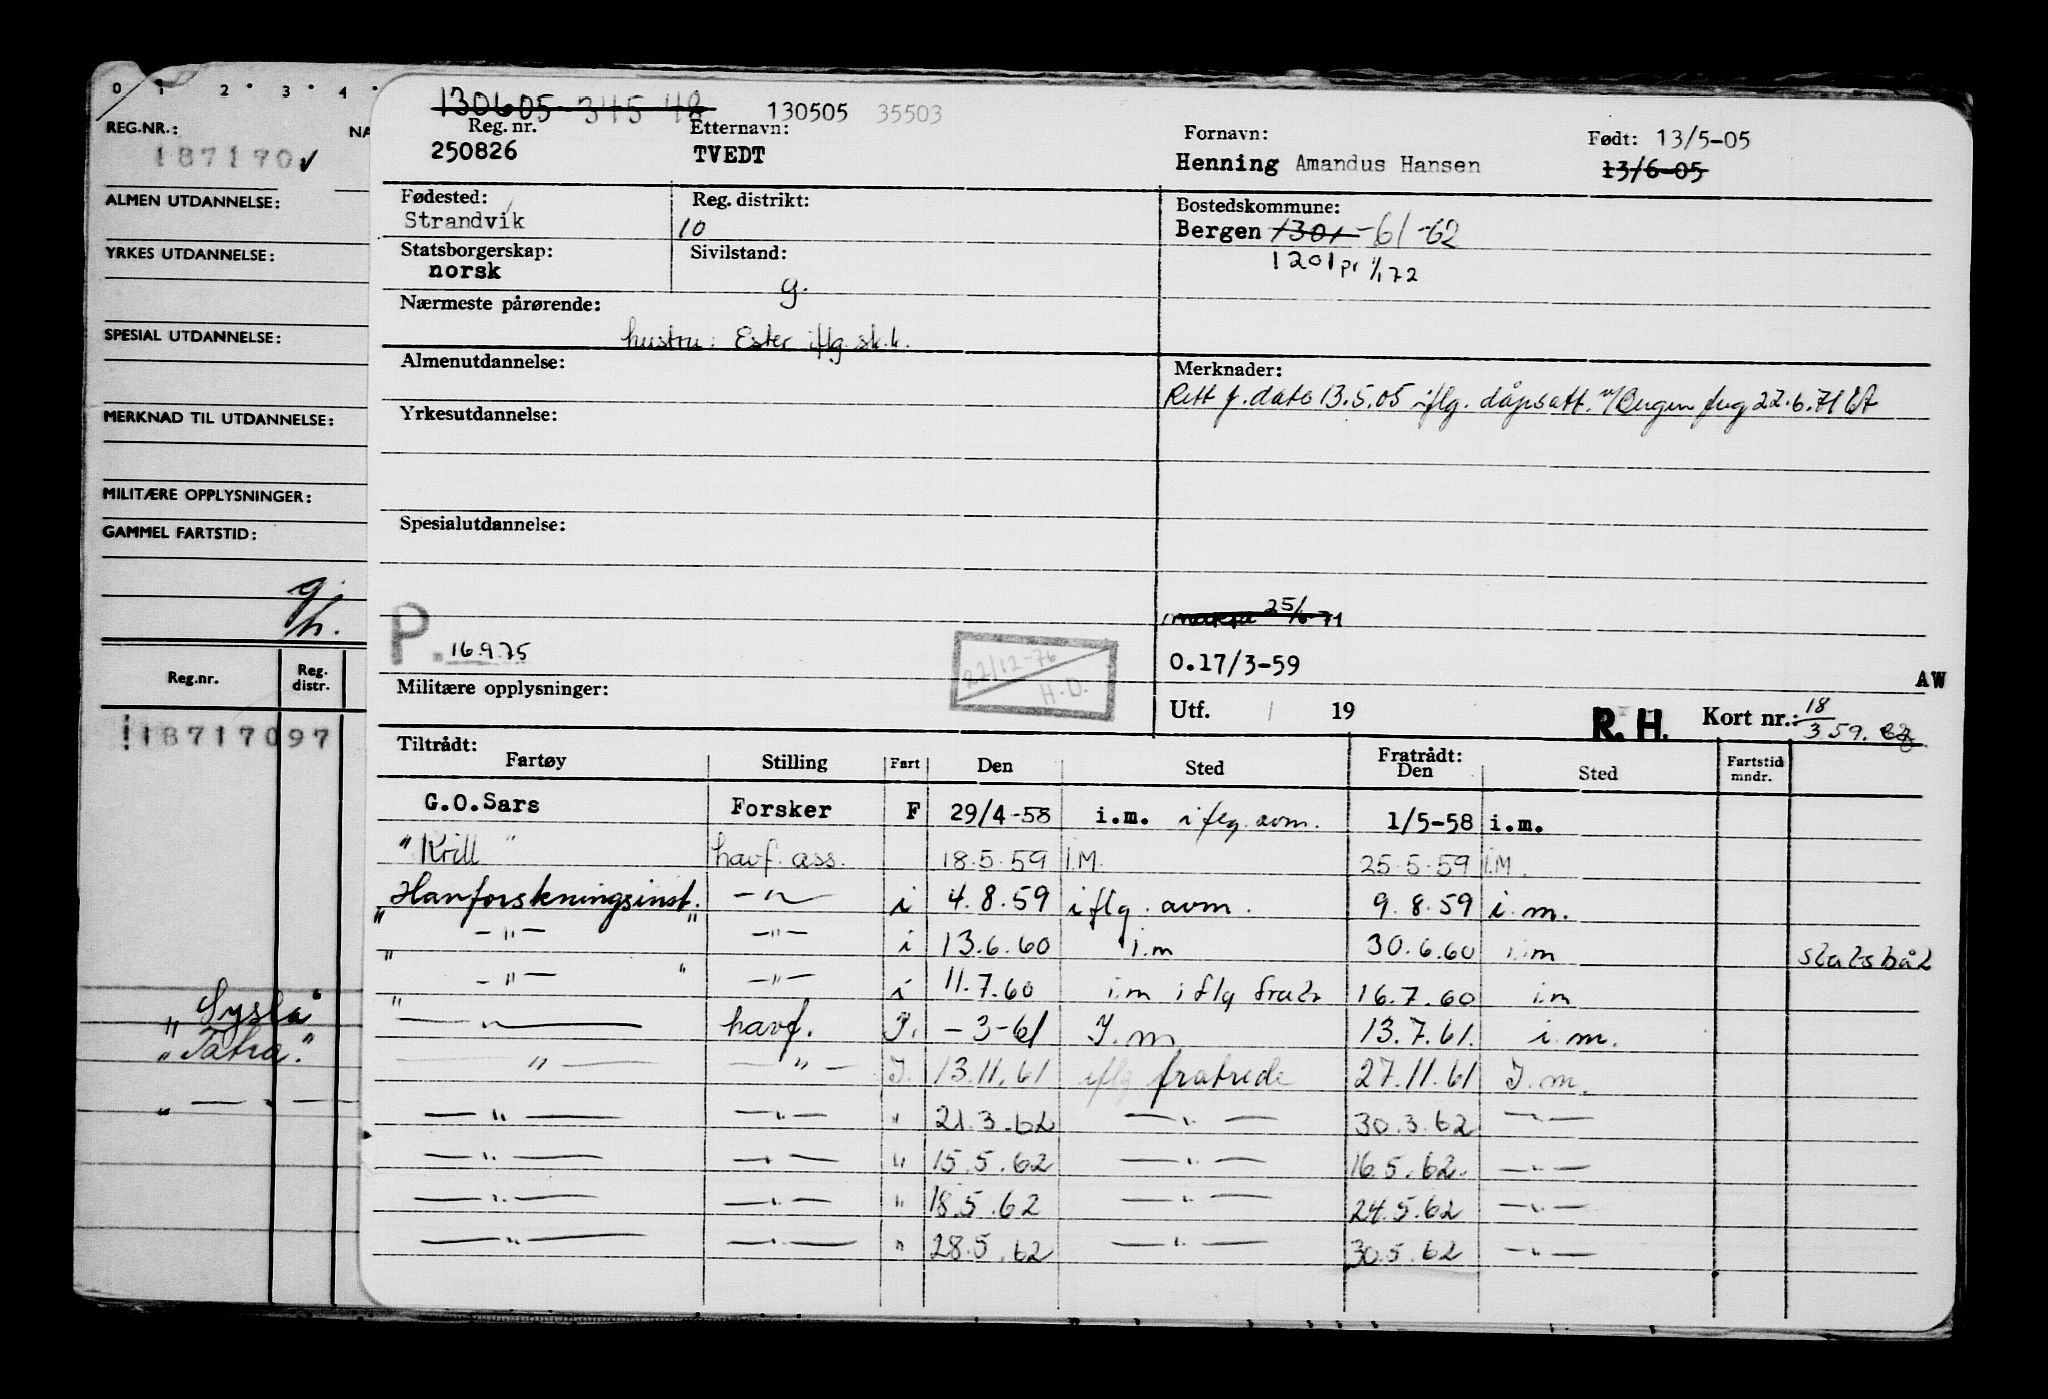 0 1 2 3 4
REG.NR.: NA
187170 ✓
ALMEN UTDANNELSE:
YRKES UTDANNELSE:
SPESIAL UTDANNELSE:
MERKNAD TIL UTDANNELSE:
MILITÆRE OPPLYSNINGER:
GAMMEL FARTSTID:
g.
h.
Reg.nr. Reg. distr.
18717097
"Sysla"
"Tatra."
" — " —
130605 34548 130505 35503
Reg. nr. Etternavn: Fornavn: Født: 13/5-05
250826 TVEDT Henning Amandus Hansen 13/6-05
Fødested: Reg. distrikt: Bostedskommune:
Strandvik 10 Bergen 1301 -61 -62
Statsborgerskap: Sivilstand: 1201 pr 1/1 72
norsk g.
Nærmeste pårørende:
hustru: Ester iflg. sk.k.
Almenutdannelse: Merknader:
Rett f. dato 13.5.05 iflg. dåpsatt. Bergen 22.6.71
Yrkesutdannelse:
Spesialutdannelse:
25/6 71
P. 16.9.75 22/12-76 H.D. O.17/3-59
AW
Militære opplysninger: Utf. / 19 R.H. Kort nr.: 18/3 59.
Tiltrådt: Fratrådt:
Fartøy Stilling Fart Den Sted Den Sted Fartstid mndr.
G.O.Sars Forsker F 29/4-58 i.m. iflg. avm. 1/5-58 i.m.
"Krill" havf. ass. 18.5.59 I.M. 25.5.59 I.M.
"Havforskningsinst." —"— i 4.8.59 iflg. avm. 9.8.59 i.m.
" —"— " —"— i 13.6.60 i.m 30.6.60 i.m statsbåt
" —"— —"— i 11.7.60 i.m iflg fratr 16.7.60 i.m
—"— havf. I. -3-61 I.m 13.7.61. i.m.
—"— —"— I. 13.11.61 iflg fratrede 27.11.61 I.m.
—"— —"— " 21.3.62 —"— 30.3.62 —"—
—"— —"— " 15.5.62 —"— 16.5.62. —"—
—"— —"— " 18.5.62 —"— 24.5.62 —"—
—"— —"— " 28.5.62 —"— 30.5.62 —"—